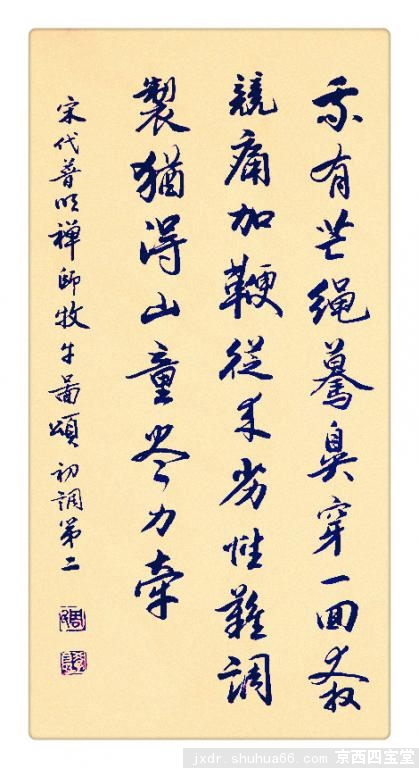 我有芒绳驀鼻穿一回奔
競痛加鞭從来劣性難調
製猶得山童尽力牽
宋代普明禅師牧牛圖頌初調第二
jxdr.shuhua66.com 京西四宝堂